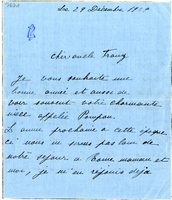 Le 29 Décembre 19
cher oncle Franz
Je vous souhaite une
bonne année et aussi de
voir souvent votre charmante
nièce appelée Pompon.
L'année prochaine a cette époque
ci nous ne serons pas loin de
notre séjour a bonne maman et
moi, je m'en réjouis déjà